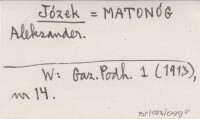 Józek = MATONÓG
Aleksander.
W: Gaz. Podh. 1 (1913),
nr 14.